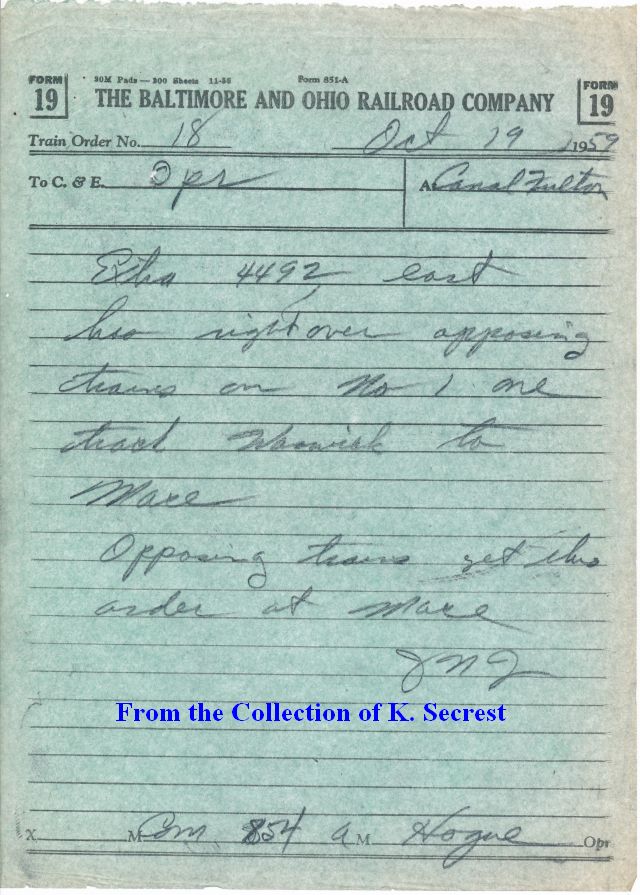 FORM 19
30M Pads — 200 Sheets 11-56 Form 851-A
THE BALTIMORE AND OHIO RAILROAD COMPANY
FORM 19
Train Order No. 18 Oct 19 1959
To C. & E. Opr At Canal Fulton
Extra 4492 east
has right over opposing
trains on No 1 one
track Warwick to
Mace
Opposing trains get this
order at Mace
From the Collection of K. Secrest
X M Com 854 A M Hogue Opr